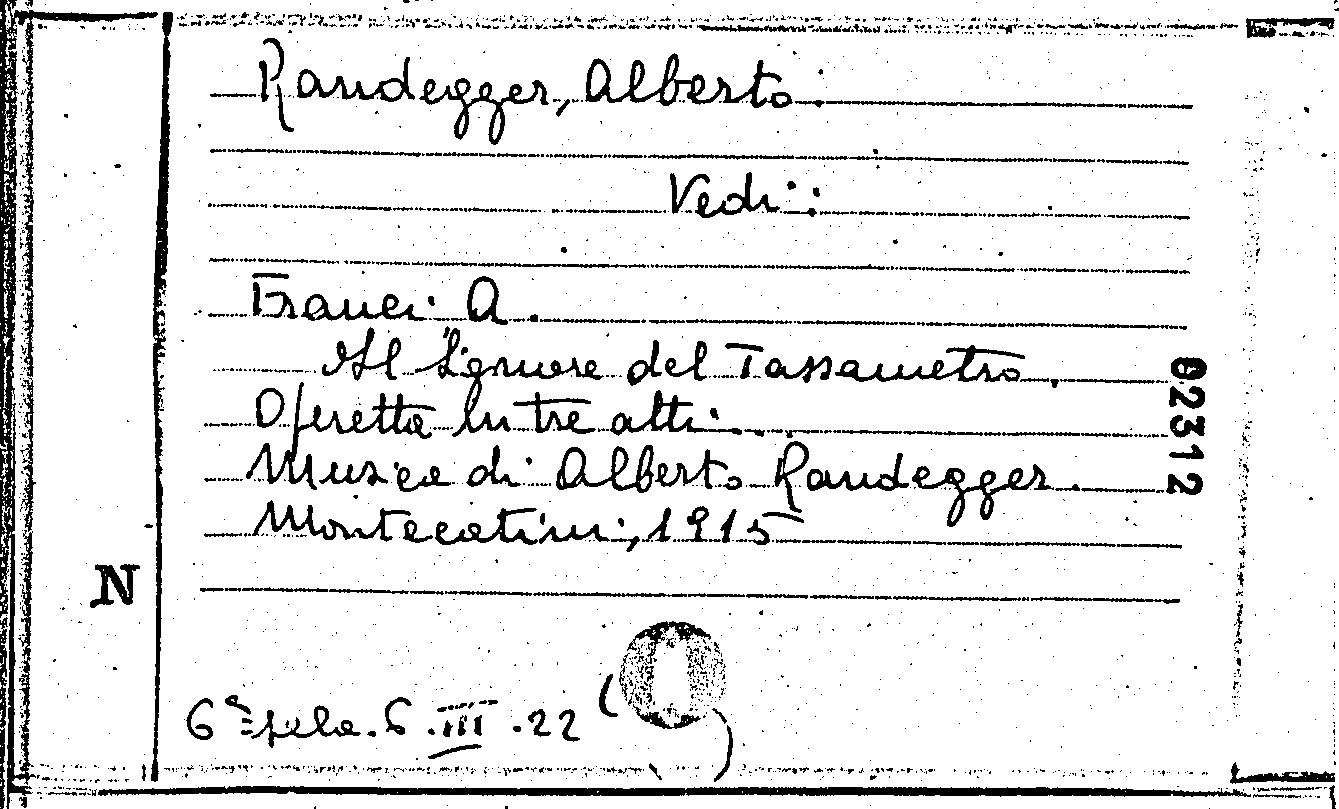 Randegger, Alberto.
Vedi:
Franci A.
Il Signore del Tassametro.
Operetta in tre atti...
Musica di Alberto Randegger.
Montecatini, 1915
02312
N
6.III.22